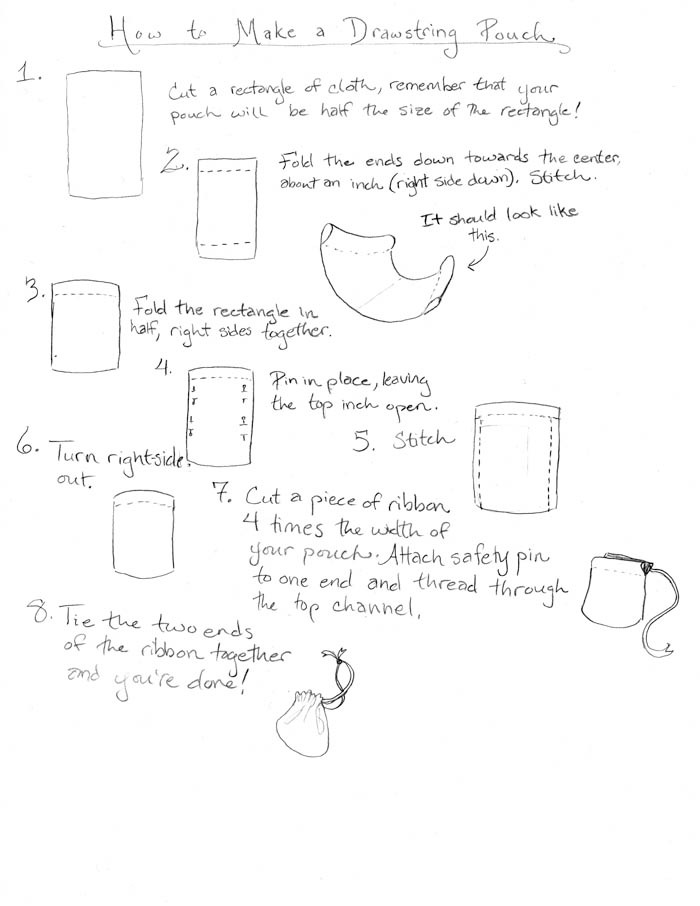 How to Make a Drawstring Pouch
1.
Cut a rectangle of cloth, remember that your
pouch will be half the size of the rectangle!
2.
Fold the ends down towards the center,
about an inch (right side down). Stitch.
It should look like
this.
3.
Fold the rectangle in
half, right sides together.
4.
Pin in place, leaving
the top inch open.
5. Stitch
6. Turn rightside
out.
7. Cut a piece of ribbon
4 times the width of
your pouch. Attach safety pin
to one end and thread through
the top channel.
8. Tie the two ends
of the ribbon together
and you're done!